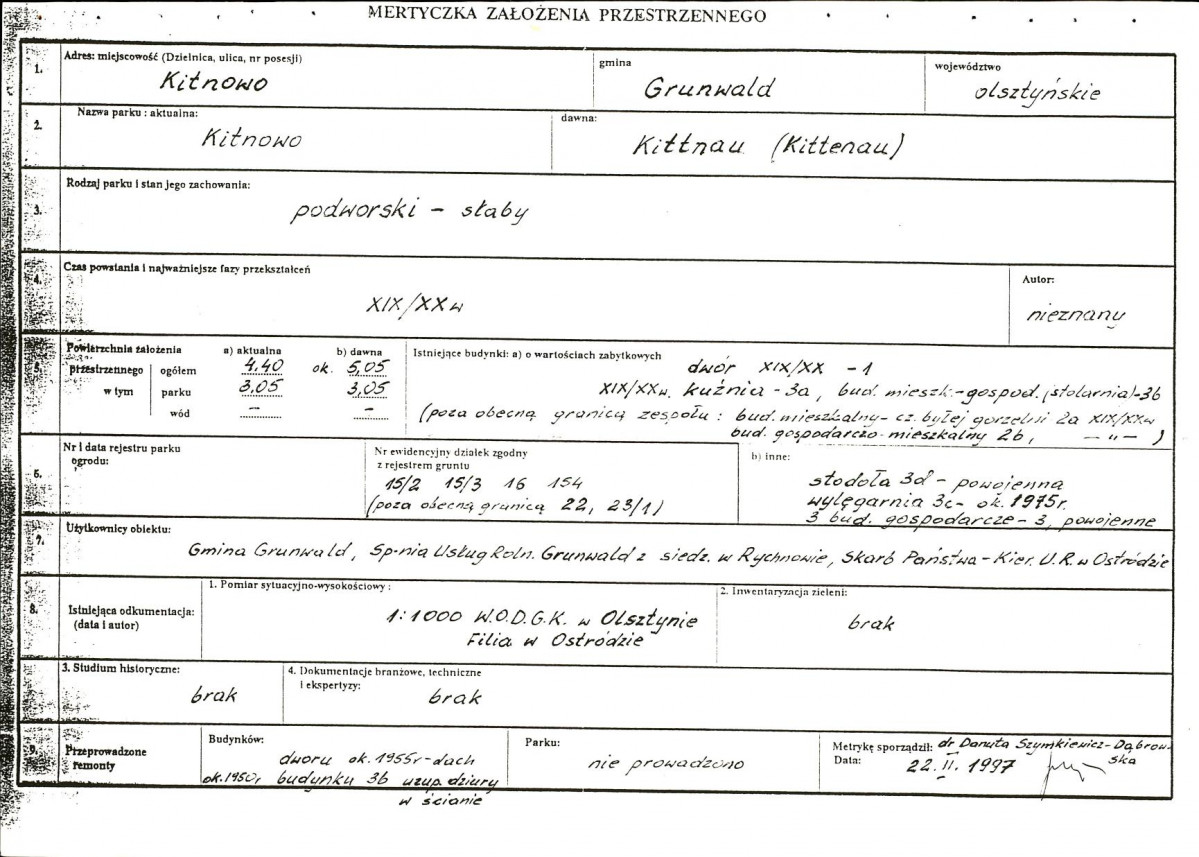 MERTYCZKA ZAŁOŻENIA PRZESTRZENNEGO
1.
Adres: miejscowość (Dzielnica, ulica, nr posesji)
Kitnowo
gmina
Grunwald
województwo
olsztyńskie
2.
Nazwa parku : aktualna:
Kitnowo
dawna:
Kittnau (Kittenau)
3.
Rodzaj parku i stan jego zachowania:
podworski – słaby
4.
Czas powstania i najważniejsze fazy przekształceń
XIX/XX w
Autor:
nieznany
5.
Powierzchnia założenia a) aktualna b) dawna
przestrzennego ogółem 4,40 ok. 5,05
w tym parku 3,05 3,05
wód – –
Istniejące budynki: a) o wartościach zabytkowych
dwór XIX/XX – 1
XIX/XX w. kuźnia – 3a, bud. mieszk.-gospod. (stolarnia) – 3b
(poza obecną granicą zespołu : bud. mieszkalny – cz. byłej gorzelni 2a XIX/XX w
bud. gospodarczo-mieszkalny 2b, – „ – )
6.
Nr i data rejestru parku
ogrodu:
Nr ewidencyjny działek zgodny
z rejestrem gruntu
15/2 15/3 16 154
(poza obecną granicą 22, 23/1)
b) inne:
stodoła 3d – powojenna
wylęgarnia 3c – ok. 1975 r.
3 bud. gospodarcze – 3, powojenne
7.
Użytkownicy obiektu:
Gmina Grunwald, Sp-nia Usług Roln. Grunwald z siedz. w Rychnowie, Skarb Państwa – Kier. U.R. w Ostródzie
8.
Istniejąca odkumentacja:
(data i autor)
1. Pomiar sytuacyjno-wysokościowy :
1:1000 W.O.D.G.K. w Olsztynie
Filia w Ostródzie
2. Inwentaryzacja zieleni:
brak
3. Studium historyczne:
brak
4. Dokumentacje branżowe, techniczne
i ekspertyzy:
brak
9.
Przeprowadzone
remonty
Budynków:
dworu ok. 1955 r – dach
ok. 1950 r budynku 3b uzup. dziury
w ścianie
Parku:
nie prowadzono
Metrykę sporządził: dr Danuta Szymkiewicz-Dąbrow-
ska
Data: 22. II. 1997